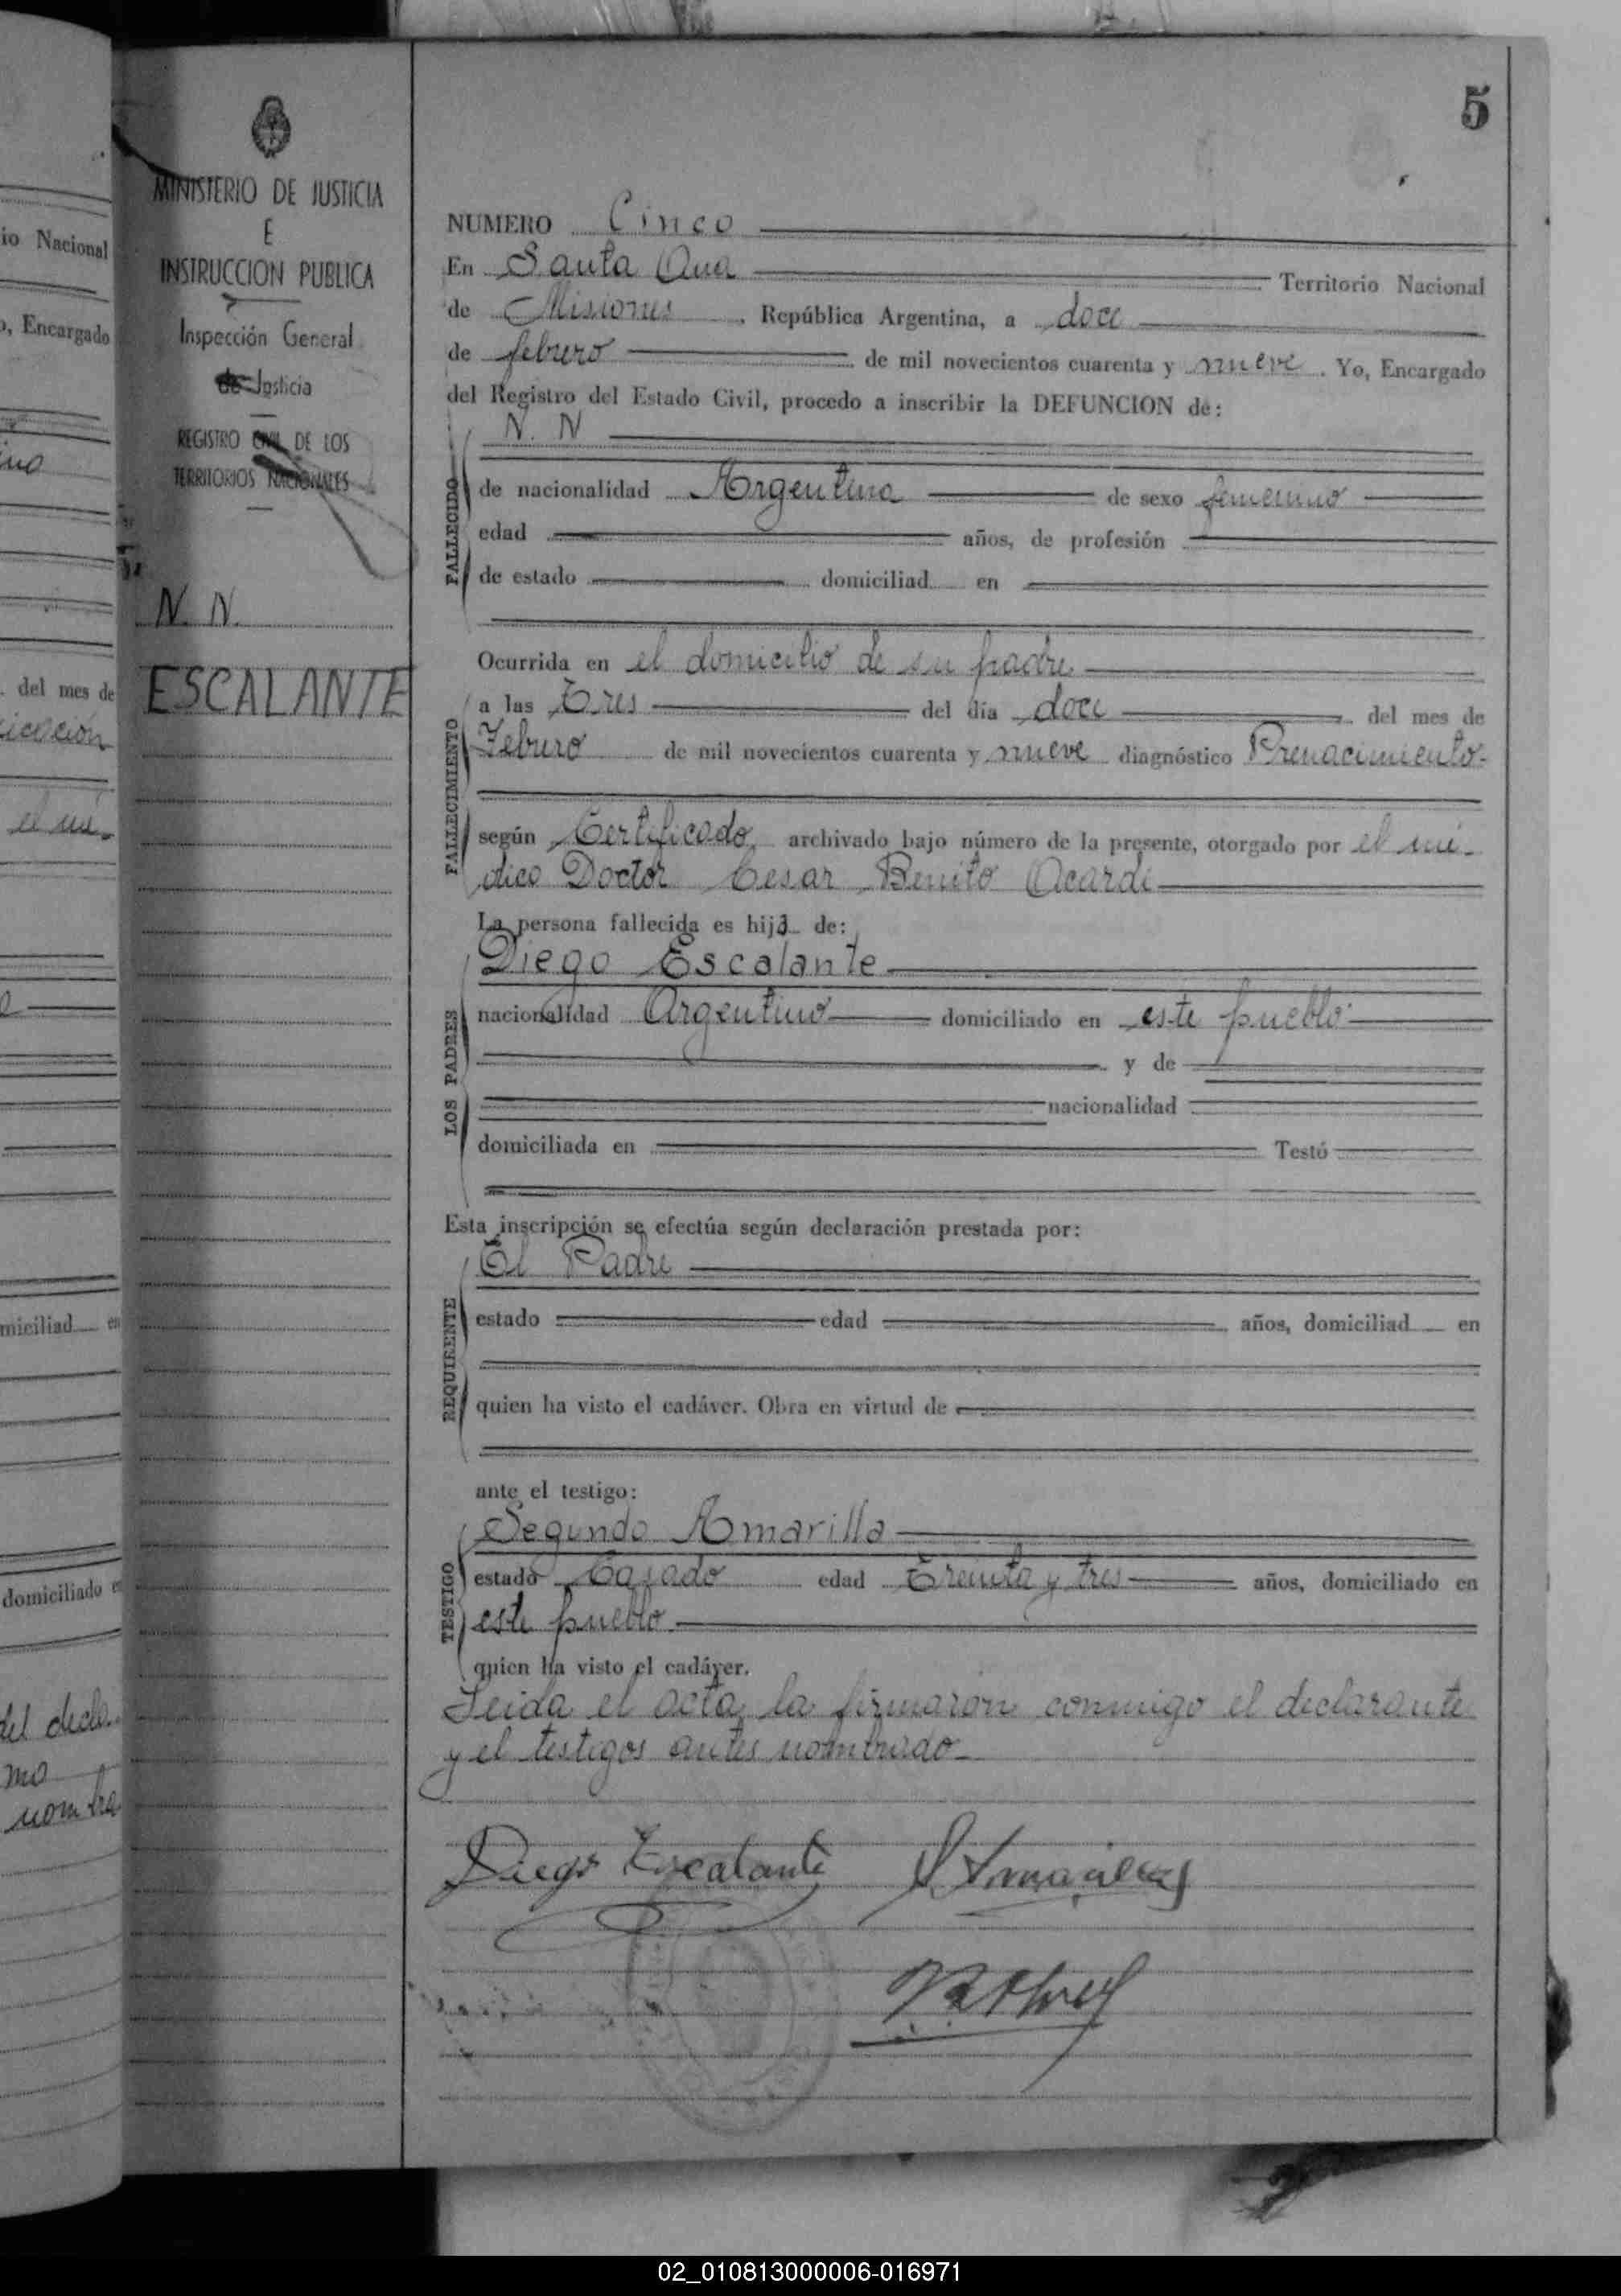 5
MINISTERIO DE JUSTICIA
E
INSTRUCCION PUBLICA
Inspección General
de Justicia
REGISTRO CIVIL DE LOS
TERRITORIOS NACIONALES
N. N.
ESCALANTE
NUMERO Cinco
En Santa Ana Territorio Nacional
de Misiones, República Argentina, a doce
de febrero de mil novecientos cuarenta y nueve. Yo, Encargado
del Registro del Estado Civil, procedo a inscribir la DEFUNCION de:
N. N
FALLECIDO
de nacionalidad Argentina de sexo femenino
edad años, de profesión
de estado domiciliad en
Ocurrida en el domicilio de su padre
FALLECIMIENTO
a las Tres del día doce del mes de
Febrero de mil novecientos cuarenta y nueve diagnóstico Prenacimiento-
según Certificado, archivado bajo número de la presente, otorgado por el mé-
dico Doctor Cesar Benito Acardi
La persona fallecida es hija de:
LOS PADRES
Diego Escalante
nacionalidad Argentino domiciliado en este pueblo
y de
nacionalidad
domiciliada en Testó
Esta inscripción se efectúa según declaración prestada por:
REQUIRENTE
El Padre
estado edad años, domiciliad en
quien ha visto el cadáver. Obra en virtud de
ante el testigo:
TESTIGO
Segundo Amarilla
estado Casado edad Treinta y tres años, domiciliado en
este pueblo
quien ha visto el cadáver.
Leida el acta la firmaron conmigo el declarante
y el testigos antes nombrado-
Diego Escalante
io Nacional
o, Encargado
del mes de
el mé-
miciliad en
domiciliado e
del decla-
nombra
02_010813000006-016971